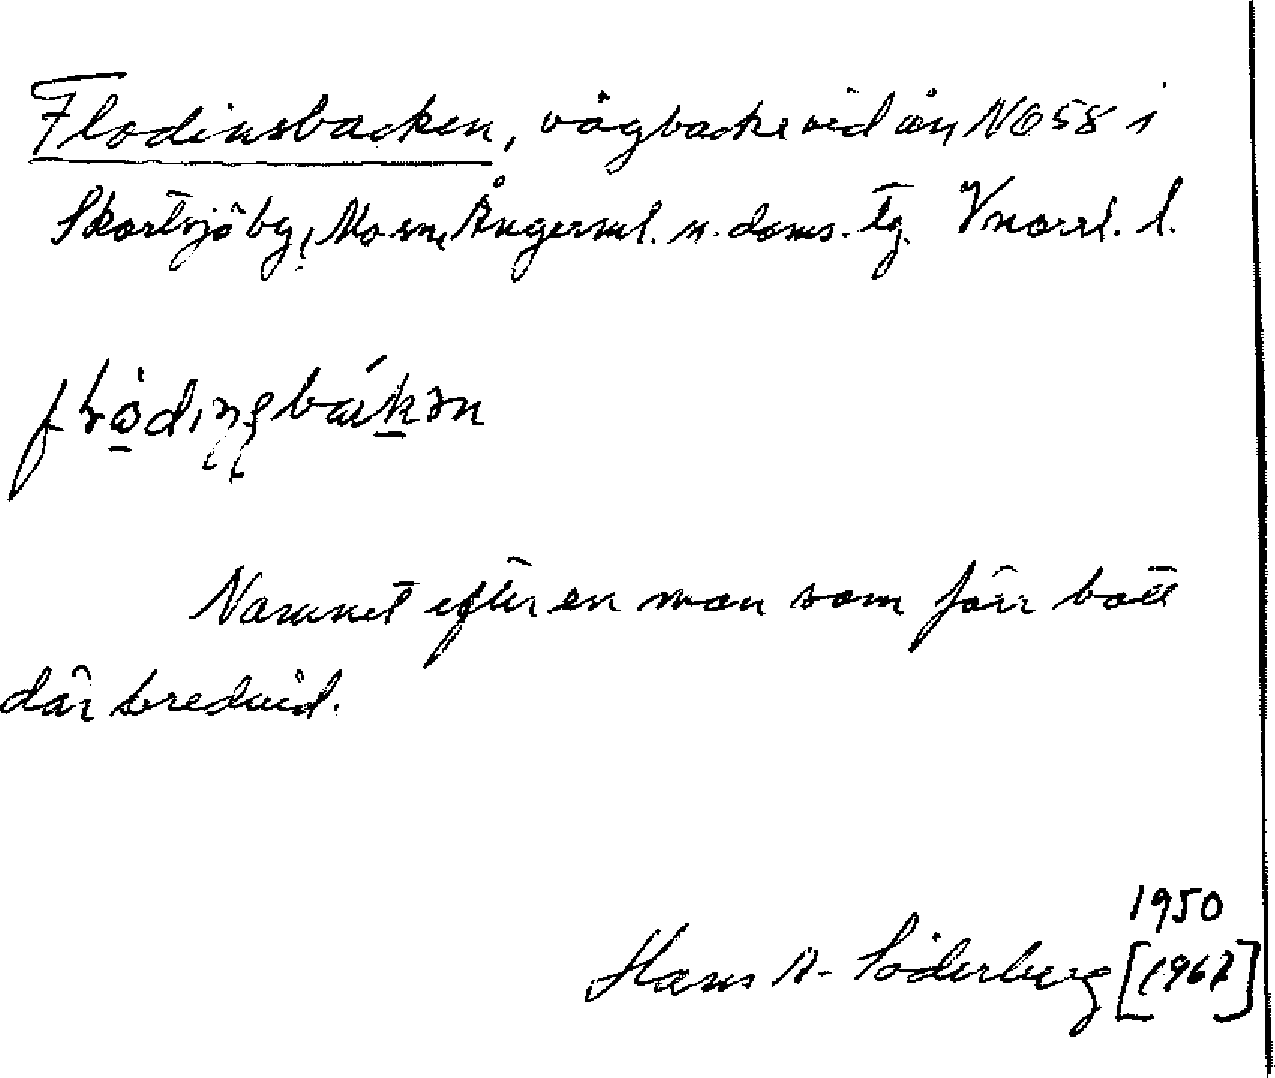 Flodinsbacken, vägbacke vid ån NO58 i
Skortsjö by, Mo sn, Ångerml. n. doms. tg. Vnorrl. l.
Namnet efter en man som förr bott
där bredvid.
1950
Hans A. Söderberg [1967]